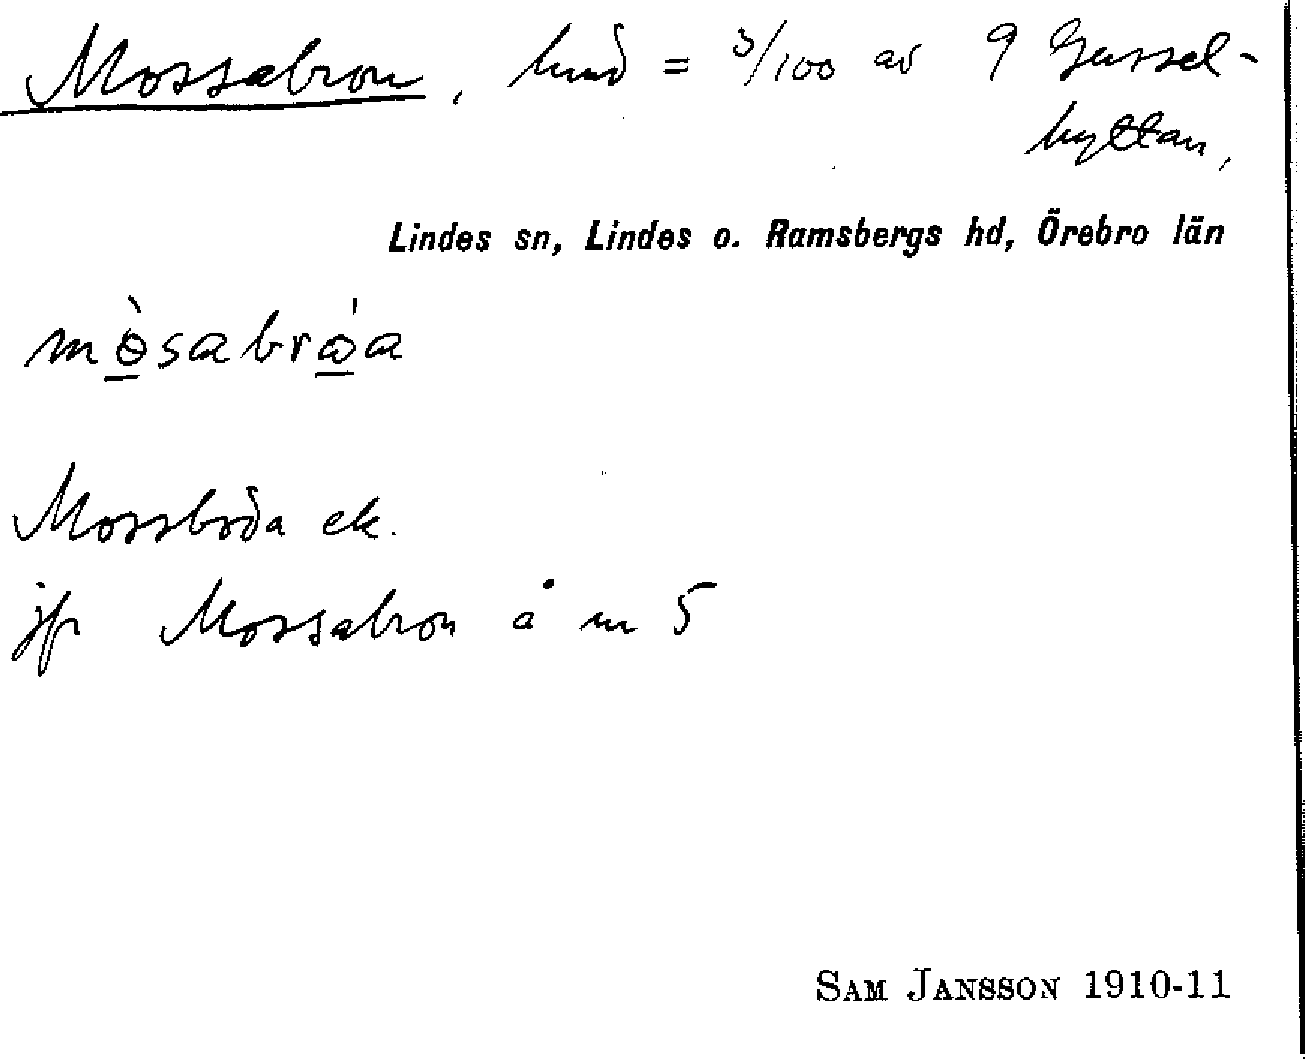 Mossabron, lund = 3/100 av 9 Gussel-
hyttan,
Lindes sn, Lindes o. Ramsbergs hd, Örebro län
mɵ̀sabrɷ́a
Mossboda ek.
jfr Mossabron å nr 5
SAM JANSSON 1910-11